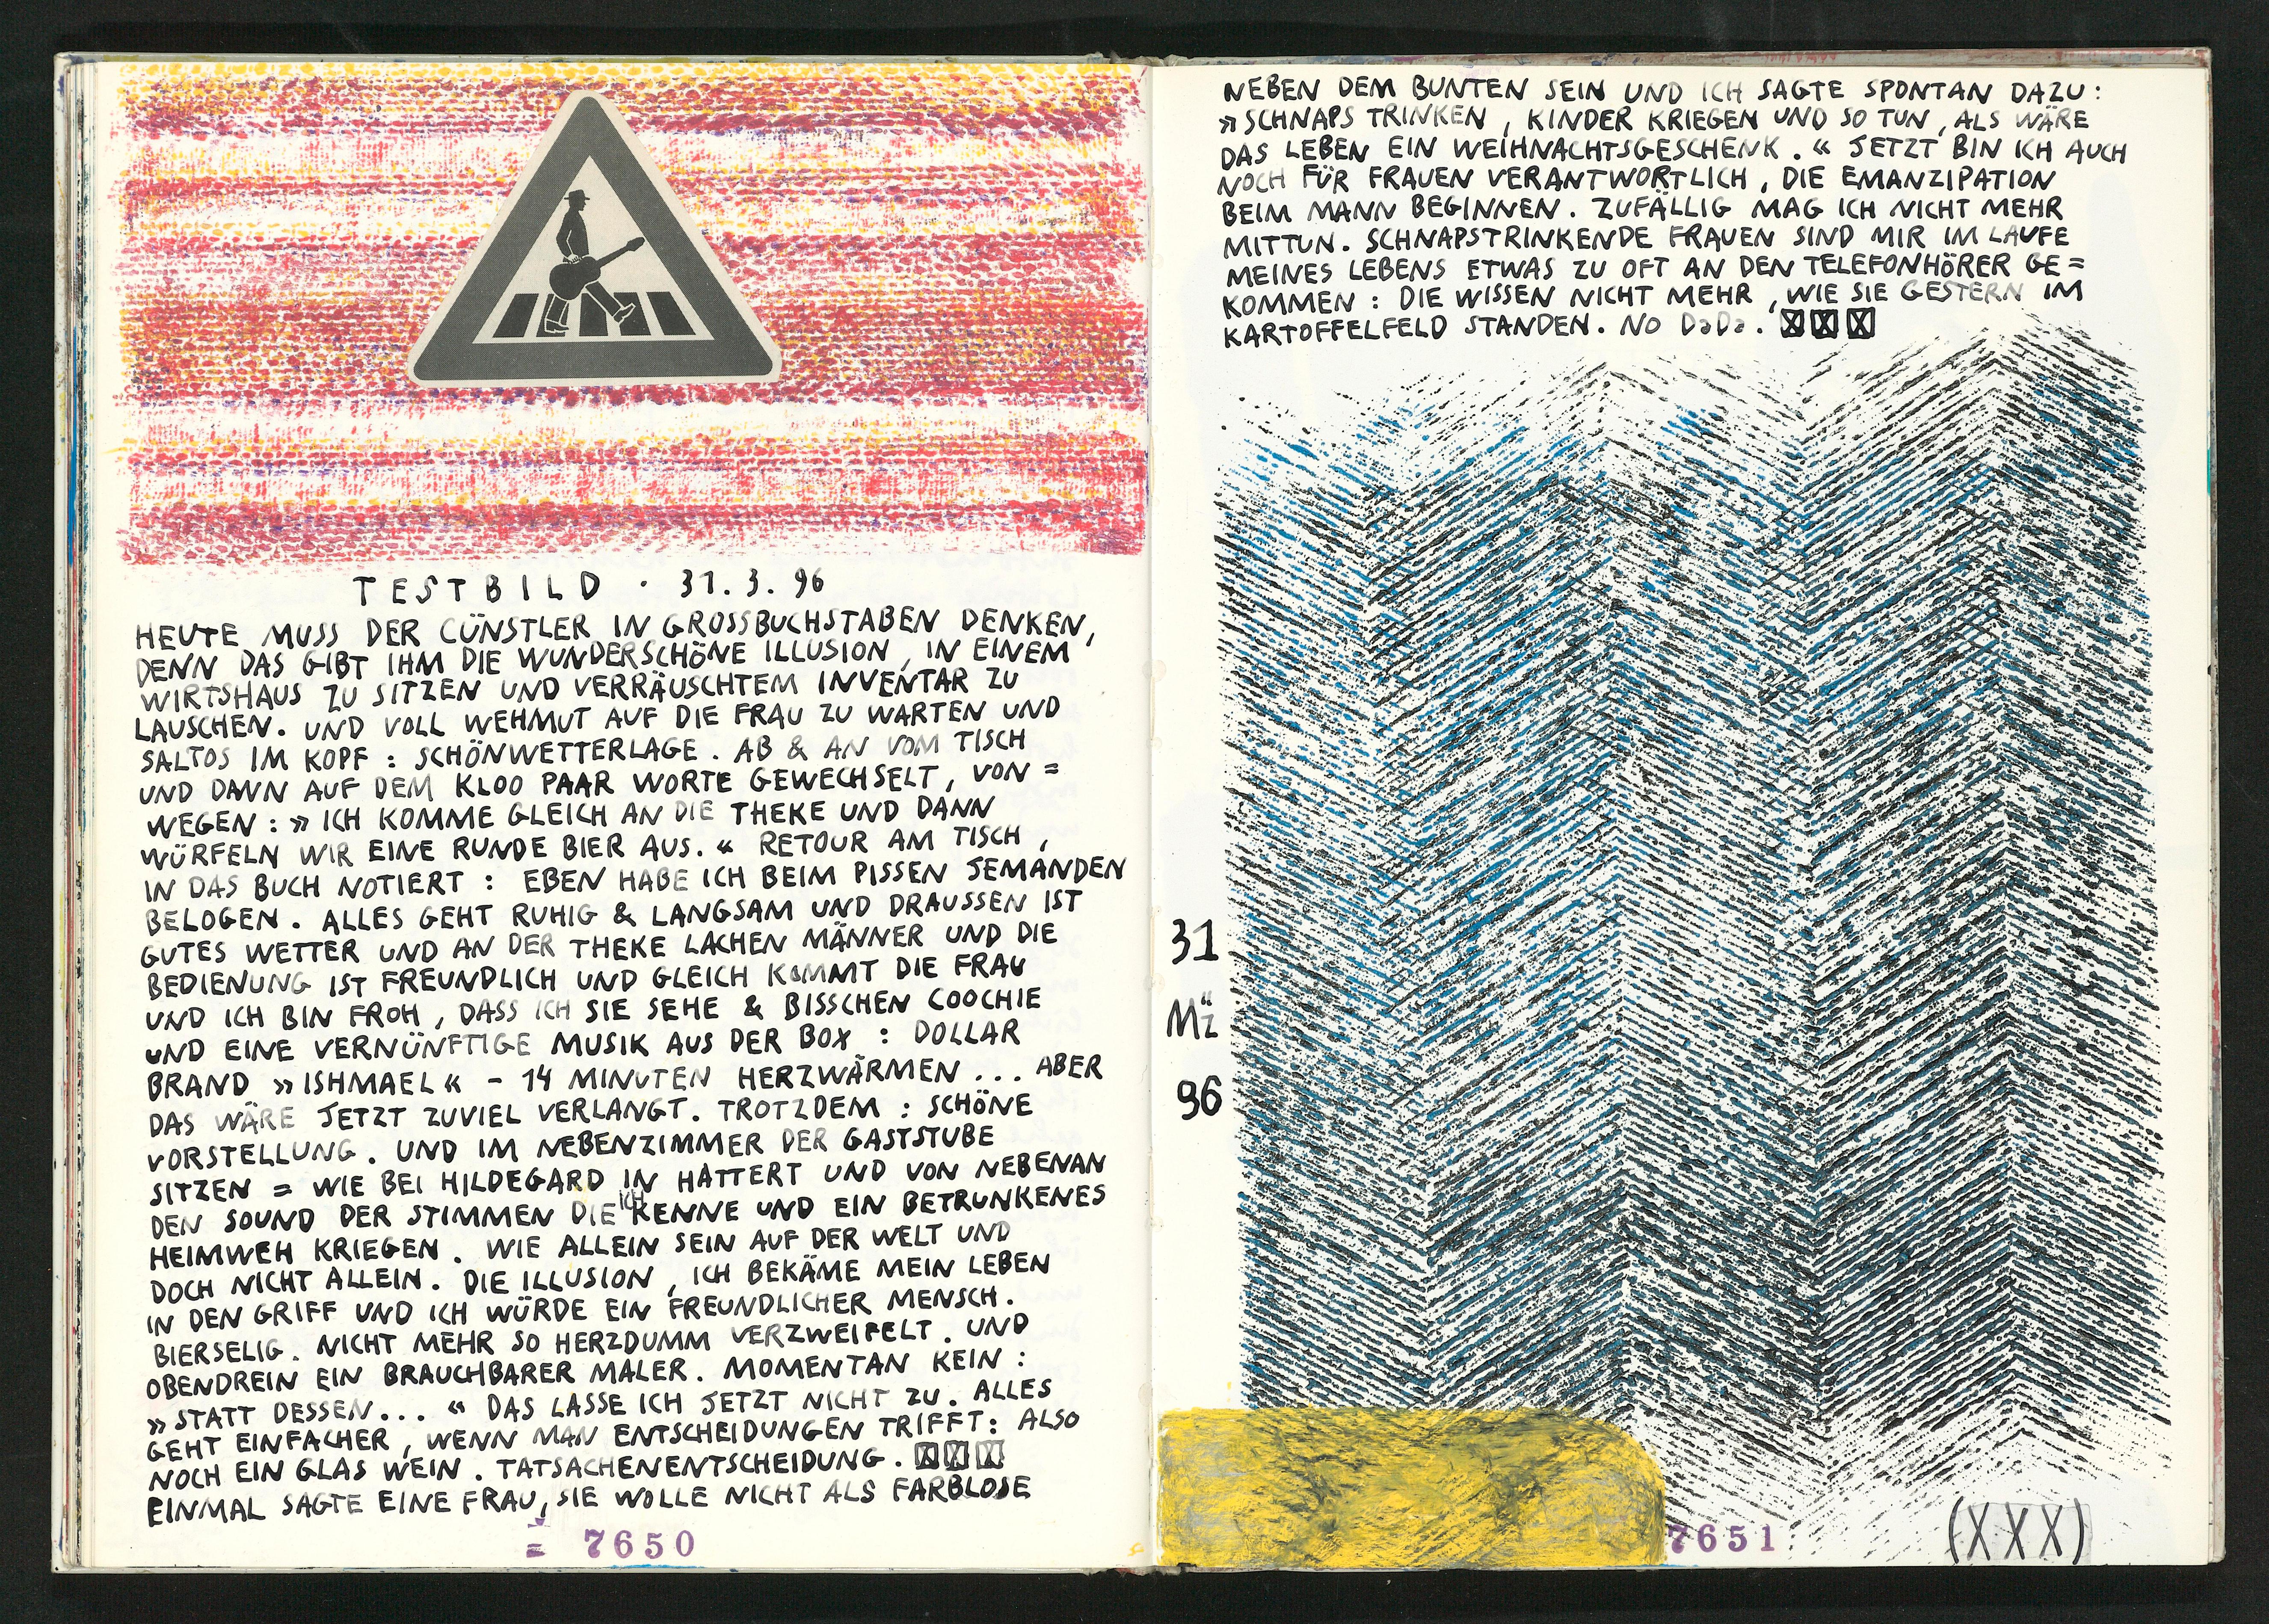 TESTBILD · 31.3.96
HEUTE MUSS DER CÜNSTLER IN GROSSBUCHSTABEN DENKEN,
DENN DAS GIBT IHM DIE WUNDERSCHÖNE ILLUSION, IN EINEM
WIRTSHAUS ZU SITZEN UND VERRÄUSCHTEM INVENTAR ZU
LAUSCHEN. UND VOLL WEHMUT AUF DIE FRAU ZU WARTEN UND
SALTOS IM KOPF : SCHÖNWETTERLAGE. AB & AN VOM TISCH
UND DANN AUF DEM KLOO PAAR WORTE GEWECHSELT, VON =
WEGEN : » ICH KOMME GLEICH AN DIE THEKE UND DANN
WÜRFELN WIR EINE RUNDE BIER AUS. « RETOUR AM TISCH,
IN DAS BUCH NOTIERT : EBEN HABE ICH BEIM PISSEN JEMANDEN
BELOGEN. ALLES GEHT RUHIG & LANGSAM UND DRAUSSEN IST
GUTES WETTER UND AN DER THEKE LACHEN MÄNNER UND DIE
BEDIENUNG IST FREUNDLICH UND GLEICH KOMMT DIE FRAU
UND ICH BIN FROH, DASS ICH SIE SEHE & BISSCHEN COOCHIE
UND EINE VERNÜNFTIGE MUSIK AUS DER BOX : DOLLAR
BRAND » ISHMAEL « – 14 MINUTEN HERZWÄRMEN ... ABER
DAS WÄRE JETZT ZUVIEL VERLANGT. TROTZDEM : SCHÖNE
VORSTELLUNG. UND IM NEBENZIMMER DER GASTSTUBE
SITZEN = WIE BEI HILDEGARD IN HATTERT UND VON NEBENAN
DEN SOUND DER STIMMEN DIE ICH KENNE UND EIN BETRUNKENES
HEIMWEH KRIEGEN. WIE ALLEIN SEIN AUF DER WELT UND
DOCH NICHT ALLEIN. DIE ILLUSION, ICH BEKÄME MEIN LEBEN
IN DEN GRIFF UND ICH WÜRDE EIN FREUNDLICHER MENSCH.
BIERSELIG. NICHT MEHR SO HERZDUMM VERZWEIFELT. UND
OBENDREIN EIN BRAUCHBARER MALER. MOMENTAN KEIN :
» STATT DESSEN... « DAS LASSE ICH JETZT NICHT ZU. ALLES
GEHT EINFACHER, WENN MAN ENTSCHEIDUNGEN TRIFFT: ALSO
NOCH EIN GLAS WEIN. TATSACHENENTSCHEIDUNG. XXX
EINMAL SAGTE EINE FRAU, SIE WOLLE NICHT ALS FARBLOSE
= 7650
NEBEN DEM BUNTEN SEIN UND ICH SAGTE SPONTAN DAZU :
» SCHNAPS TRINKEN, KINDER KRIEGEN UND SO TUN, ALS WÄRE
DAS LEBEN EIN WEIHNACHTSGESCHENK. « JETZT BIN ICH AUCH
NOCH FÜR FRAUEN VERANTWORTLICH, DIE EMANZIPATION
BEIM MANN BEGINNEN. ZUFÄLLIG MAG ICH NICHT MEHR
MITTUN. SCHNAPSTRINKENDE FRAUEN SIND MIR IM LAUFE
MEINES LEBENS ETWAS ZU OFT AN DEN TELEFONHÖRER GE=
KOMMEN : DIE WISSEN NICHT MEHR, WIE SIE GESTERN IM
KARTOFFELFELD STANDEN. NO DaDa. XXX
31
Mz
96
7651
(XXX)